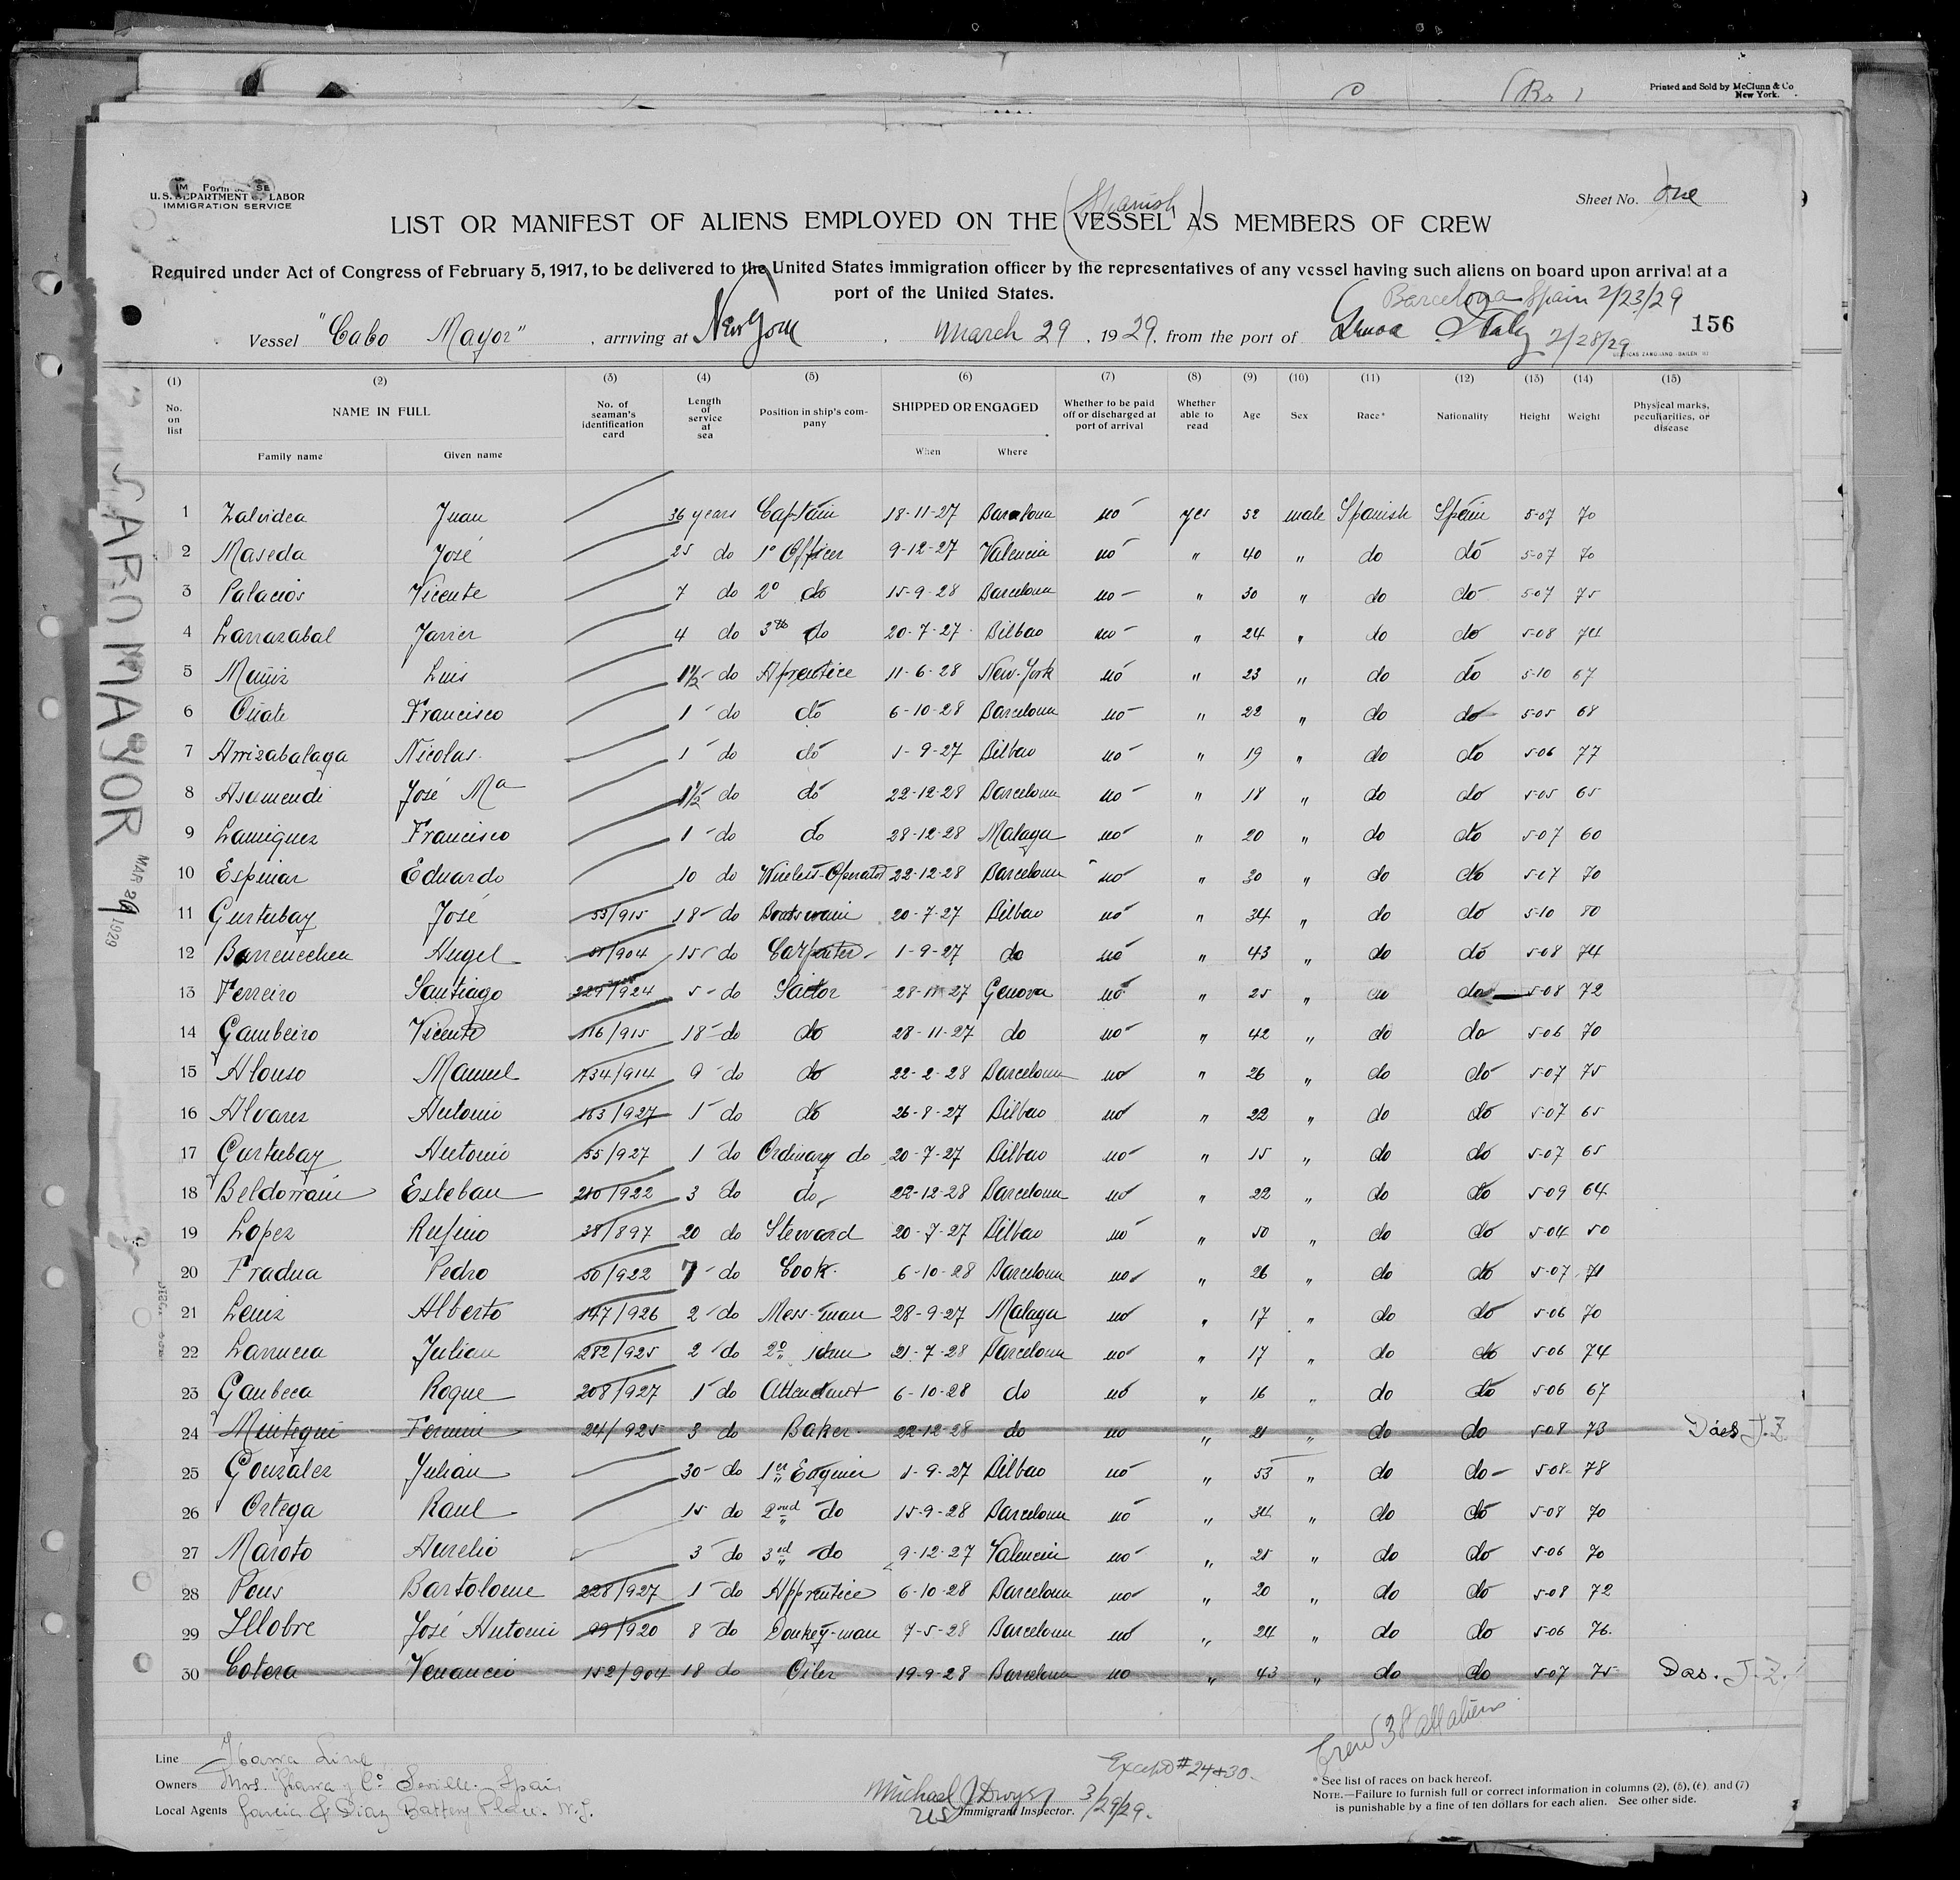 Printed and Sold by McClunn & Co
New York.
U. S. DEPARTMENT of LABOR
IMMIGRATION SERVICE
Sheet No. One
(Spanish)
LIST OR MANIFEST OF ALIENS EMPLOYED ON THE VESSEL AS MEMBERS OF CREW
Required under Act of Congress of February 5, 1917, to be delivered to the United States immigration officer by the representatives of any vessel having such aliens on board upon arrival at a
port of the United States.
Barcelona Spain 2/23/29
Vessel "Cabo Mayor", arriving at New York, March 29, 1929, from the port of Genoa Italy 2/28/29
156
CABO MAYOR
MAR 29 1929
(1) (2) (3) (4) (5) (6) (7) (8) (9) (10) (11) (12) (13) (14) (15)
No. on list NAME IN FULL No. of seaman's identification card Length of service at sea Position in ship's company SHIPPED OR ENGAGED Whether to be paid off or discharged at port of arrival Whether able to read Age Sex Race* Nationality Height Weight Physical marks, peculiarities, or disease
Family name Given name When Where
1 Zalvidea Juan 36 years Captain 18-11-27 Barcelona no yes 52 male Spanish Spain 5-07 70
2 Maseda José 25 do 1º Officer 9-12-27 Valencia no " 40 " do do 5-07 70
3 Palacios Vicente 7 do 2º do 15-9-28 Barcelona no " 30 " do do 5-07 75
4 Larrazabal Javier 4 do 3th do 20-7-27 Bilbao no " 24 " do do 5-08 74
5 Muñiz Luis 1½ do Aprentice 11-6-28 New-York no " 23 " do do 5-10 67
6 Oñate Francisco 1 do do 6-10-28 Barcelona no " 22 " do do 5-05 68
7 Arrizabalaga Nicolas 1 do do 1-9-27 Bilbao no " 19 " do do 5-06 77
8 Asumendi José Ma 1½ do do 22-12-28 Barcelona no " 18 " do do 5-05 65
9 Lamiquez Francisco 1 do do 28-12-28 Malaga no " 20 " do do 5-07 60
10 Espinar Eduardo 10 do Wireless-Operator 22-12-28 Barcelona no " 30 " do do 5-07 70
11 Gurtubay José 53/915 18 do Boatswain 20-7-27 Bilbao no " 34 " do do 5-10 80
12 Barrenechea Angel /904 15 do Carpenter 1-9-27 do no " 43 " do do 5-08 74
13 Ferreiro Santiago 229/924 5 do Sailor 28-11-27 Genova no " 25 " do do 5-08 72
14 Gambeiro Vicente 116/915 18 do do 28-11-27 do no " 42 " do do 5-06 70
15 Alonso Manuel 134/914 9 do do 22-2-28 Barcelona no " 26 " do do 5-07 75
16 Alvarez Antonio 163/927 1 do do 26-8-27 Bilbao no " 22 " do do 5-07 65
17 Gurtubay Antonio 55/927 1 do Ordinary do 20-7-27 Bilbao no " 15 " do do 5-07 65
18 Beldorrain Esteban 210/922 3 do do 22-12-28 Barcelona no " 22 " do do 5-09 64
19 Lopez Rufino 38/897 20 do Steward 20-7-27 Bilbao no " 50 " do do 5-04 50
20 Fradua Pedro 50/922 7 do Cook 6-10-28 Barcelona no " 26 " do do 5-07 71
21 Leniz Alberto 147/926 2 do Mess-man 28-9-27 Malaga no " 17 " do do 5-06 70
22 Larrucea Julian 282/925 2 do 2º idem 21-7-28 Barcelona no " 17 " do do 5-06 74
23 Gaubeca Roque 208/927 1 do Attendant 6-10-28 do no " 16 " do do 5-06 67
24 Mintegui Fermin 24/925 3 do Baker 22-12-28 do no " 21 " do do 5-08 73 J.Z.
25 Gonzalez Julian 30 do 1er Enginer 1-9-27 Bilbao no " 53 " do do 5-08 78
26 Ortega Raul 15 do 2nd do 15-9-28 Barcelona no " 34 " do do 5-08 70
27 Maroto Aurelio 3 do 3rd do 9-12-27 Valencia no " 25 " do do 5-06 70
28 Pons Bartolome 228/927 1 do Apprentice 6-10-28 Barcelona no " 20 " do do 5-08 72
29 Illobre José Antonio 99/920 8 do Donkey-man 7-5-28 Barcelona no " 24 " do do 5-06 76
30 Cotera Venancio 152/904 18 do Oiler 19-9-28 Barcelona no " 43 " do do 5-07 75 Das. J.Z.
Crew 38 all aliens
Line Ibarra Line
Owners Mrs. Ibarra y Cº Seville. Spain
Local Agents Garcia & Diaz Battery Place. N.Y.
Except #24+30
Michael J Dwyer 3/29/29.
US Immigrant Inspector.
* See list of races on back hereof.
NOTE.—Failure to furnish full or correct information in columns (2), (5), (6) and (7)
is punishable by a fine of ten dollars for each alien. See other side.